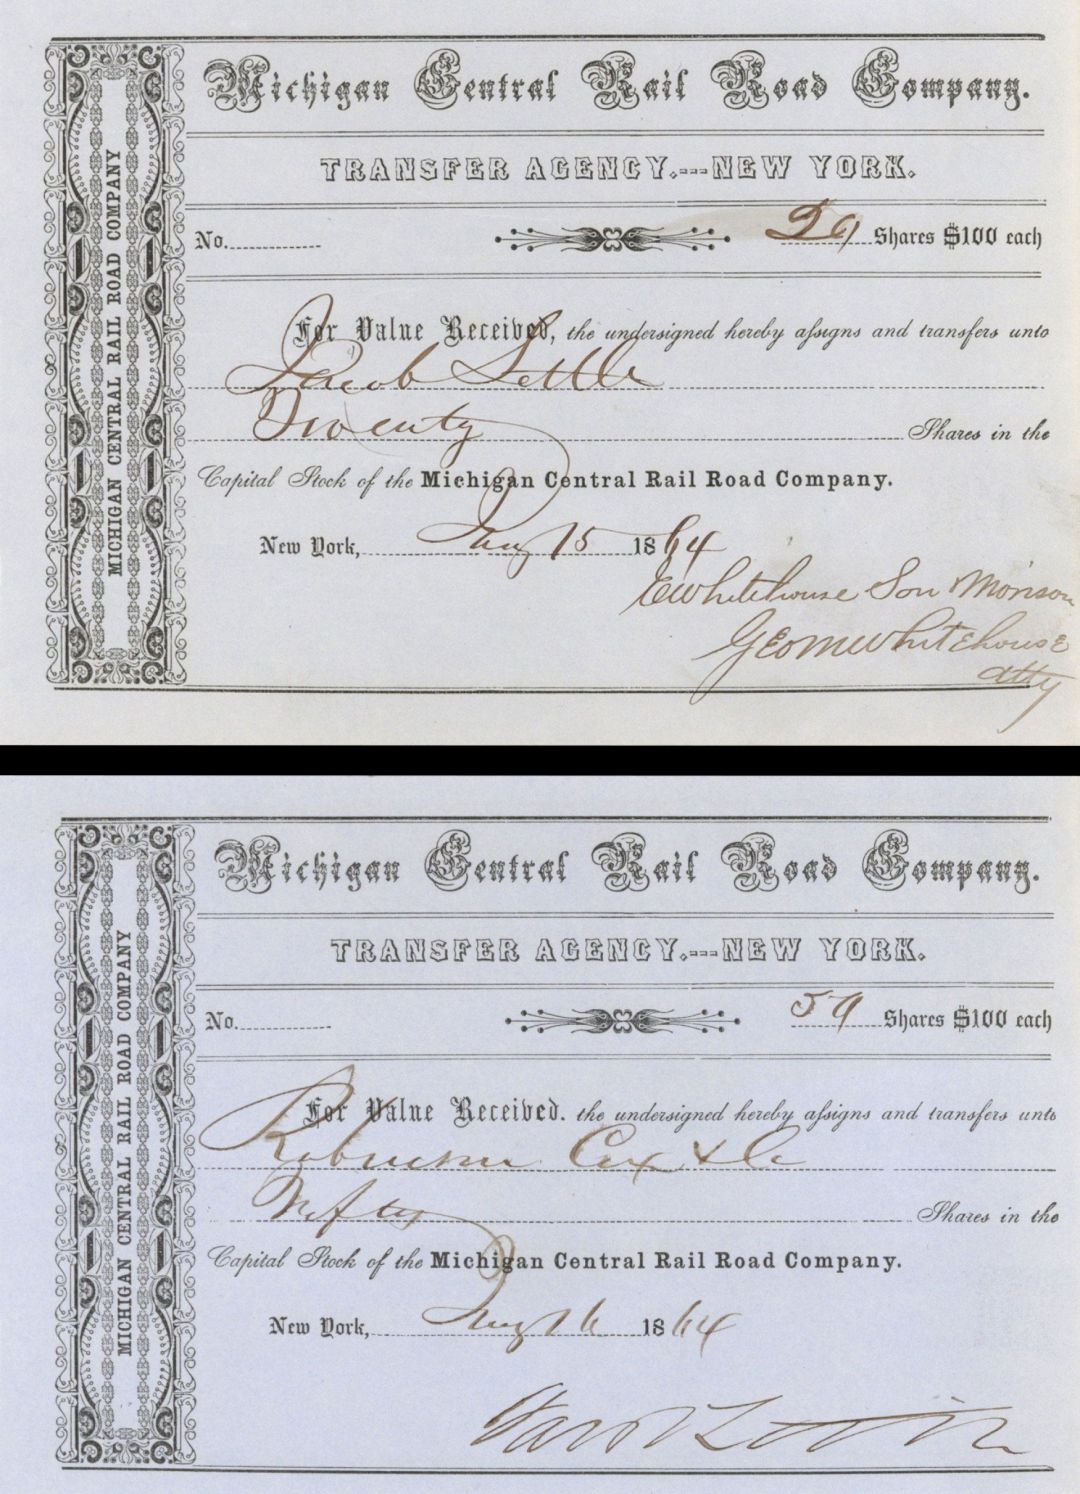 MICHIGAN CENTRAL RAIL ROAD COMPANY
Michigan Central Rail Road Company.
TRANSFER AGENCY.---NEW YORK.
No. 20 Shares $100 each
For Value Received, the undersigned hereby assigns and transfers unto
Jacob Little
Twenty Shares in the
Capital Stock of the Michigan Central Rail Road Company.
New York, Aug 15 1864
E Whitehouse Son & Morison
Geo M Whitehouse
atty
MICHIGAN CENTRAL RAIL ROAD COMPANY
Michigan Central Rail Road Company.
TRANSFER AGENCY.---NEW YORK.
No. 50 Shares $100 each
For Value Received. the undersigned hereby assigns and transfers unto
Robinson Cox & Co
Fifty Shares in the
Capital Stock of the Michigan Central Rail Road Company.
New York, Aug 16 1864